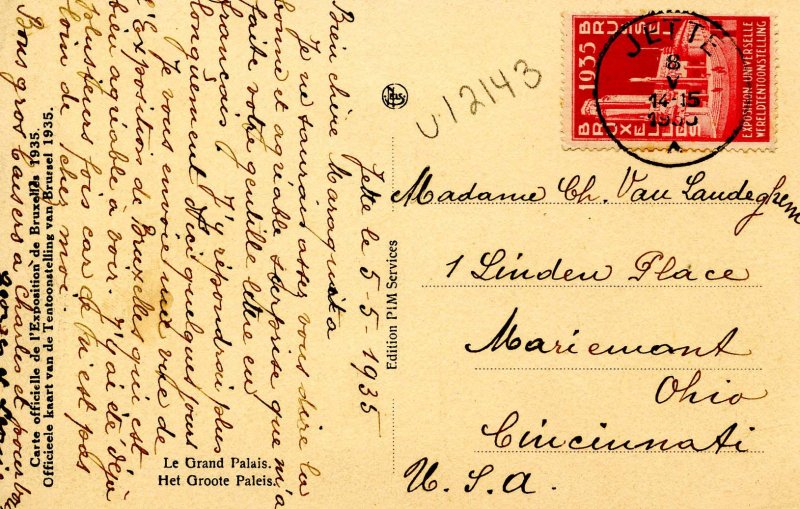 Jette le 5-5-1935
Bien chère Maraquita
Je ne saurais assez vous dire la
bonne et agréable surprise que m'a
faite votre gentille lettre en
français. J'y répondrai plus
longuement d'ici quelques jours
Je vous envoie une vue de
l'Exposition de Bruxelles qui est
bien agréable à voir. J'y ai été déjà
plusieurs fois car ce n'est pas
loin de chez moi.
Bons gros baisers à Charles et pour
Carte officielle de l'Exposition de Bruxelles 1935.
Officieele kaart van de Tentoonstelling van Brussel 1935.
Le Grand Palais.
Het Groote Paleis.
Edition PIM Services
U12143
1935 BRUSSEL
BRUXELLES
EXPOSITION UNIVERSELLE
WERELDTENTOONSTELLING
JETTE
8
V
14-15
1935
A
Madame Ch. Van Landeghem
1 Linden Place
Mariemont
Ohio
Cincinnati
U.S.A.